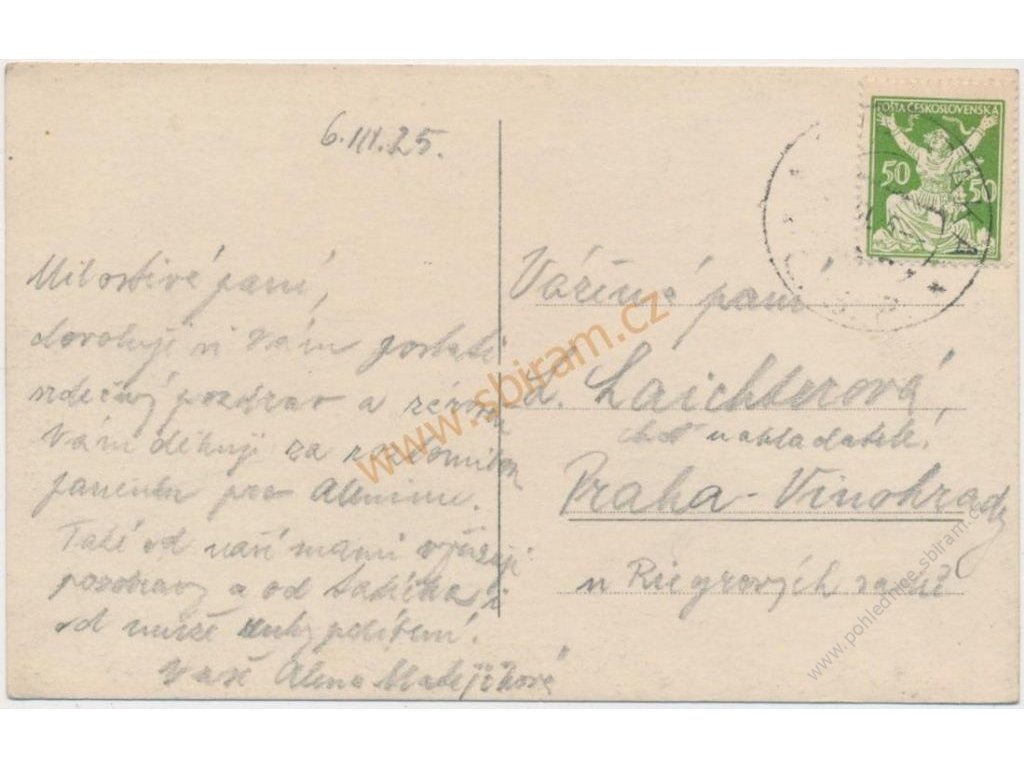 6.III.25.
Milostivé paní,
dovoluji si Vám poslati
srdečný pozdrav a zároveň
Vám děkuji za
pro Aleninu.
Také od naší mami vyřizuji
pozdravy a od
od muže ruky políbení.
Vaše Alena Matějíčková
POŠTA ČESKOSLOVENSKÁ
50 50
Vážená paní
L. Laichterová,
choť nakladatele
Praha - Vinohrady
u Riegrových sadů
www.sbiram.cz
www.pohlednice.sbiram.cz